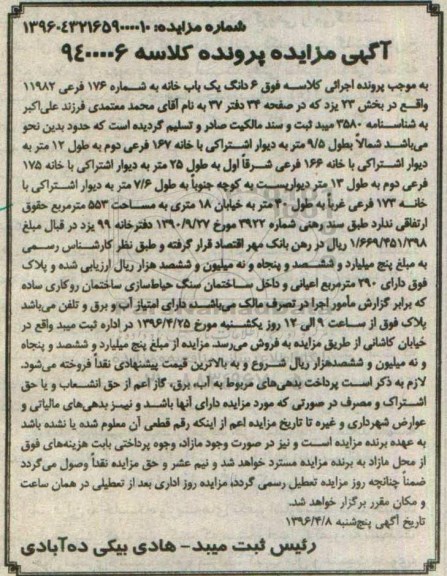 شماره مزایده: ۱۳۹۶۰۴۳۲۱۶۵۹۰۰۰۰۱۰
آگهی مزایده پرونده کلاسه ۹۴۰۰۰۰۶
به موجب پرونده اجرائی کلاسه فوق ۶ دانگ یک باب خانه به شماره ۱۷۶ فرعی ۱۱۹۸۲
واقع در بخش ۲۳ یزد که در صفحه ۳۴ دفتر ۳۷ به نام آقای محمد معتمدی فرزند علی‌اکبر
به شناسنامه ۳۵۸۰ میبد ثبت و سند مالکیت صادر و تسلیم گردیده است که حدود بدین نحو
می‌باشد شمالاً بطول ۹/۵ متر به دیوار اشتراکی با خانه ۱۶۷ فرعی دوم به طول ۱۲ متر به
دیوار اشتراکی با خانه ۱۶۶ فرعی شرقاً اول به طول ۲۵ متر به دیوار اشتراکی با خانه ۱۷۵
فرعی دوم به طول ۱۳ متر دیواریست به کوچه جنوباً به طول ۷/۶ متر به دیوار اشتراکی با
خانه ۱۷۳ فرعی غرباً به طول ۴۰ متر به خیابان ۱۸ متری به مساحت ۵۵۳ مترمربع حقوق
ارتفاقی ندارد طبق سند رهنی شماره ۳۹۲۲ مورخ ۱۳۹۰/۹/۲۷ دفترخانه ۹۹ یزد در قبال مبلغ
۱/۶۶۹/۴۵۱/۳۹۸ ریال در رهن بانک مهر اقتصاد قرار گرفته و طبق نظر کارشناس رسمی
به مبلغ پنج میلیارد و ششصد و پنجاه و نه میلیون و ششصد هزار ریال ارزیابی شده و پلاک
فوق دارای ۲۹۰ مترمربع اعیانی و داخل ساختمان سنگ حیاط‌سازی ساختمان روکاری ساده
که برابر گزارش مأمور اجرا در تصرف مالک می‌باشد، دارای امتیاز آب و برق و تلفن می‌باشد
پلاک فوق از ساعت ۹ الی ۱۲ روز یکشنبه مورخ ۱۳۹۶/۴/۲۵ در اداره ثبت میبد واقع در
خیابان کاشانی از طریق مزایده به فروش می‌رسد. مزایده از مبلغ پنج میلیارد و ششصد و پنجاه
و نه میلیون و ششصدهزار ریال شروع و به بالاترین قیمت پیشنهادی نقداً فروخته می‌شود.
لازم به ذکر است پرداخت بدهی‌های مربوط به آب، برق، گاز اعم از حق انشعاب و یا حق
اشتراک و مصرف در صورتی که مورد مزایده دارای آنها باشد و نیز بدهی‌های مالیاتی و
عوارض شهرداری و غیره تا تاریخ مزایده اعم از اینکه رقم قطعی آن معلوم شده یا نشده باشد
به عهده برنده مزایده است و نیز در صورت وجود مازاد، وجوه پرداختی بابت هزینه‌های فوق
از محل مازاد به برنده مزایده مسترد خواهد شد و نیم عشر و حق مزایده نقداً وصول می‌گردد
ضمناً چنانچه روز مزایده تعطیل رسمی گردد، مزایده روز اداری بعد از تعطیلی در همان ساعت
و مکان مقرر برگزار خواهد شد.
تاریخ آگهی پنج‌شنبه ۱۳۹۶/۴/۸
رئیس ثبت میبد- هادی بیکی ده‌آبادی